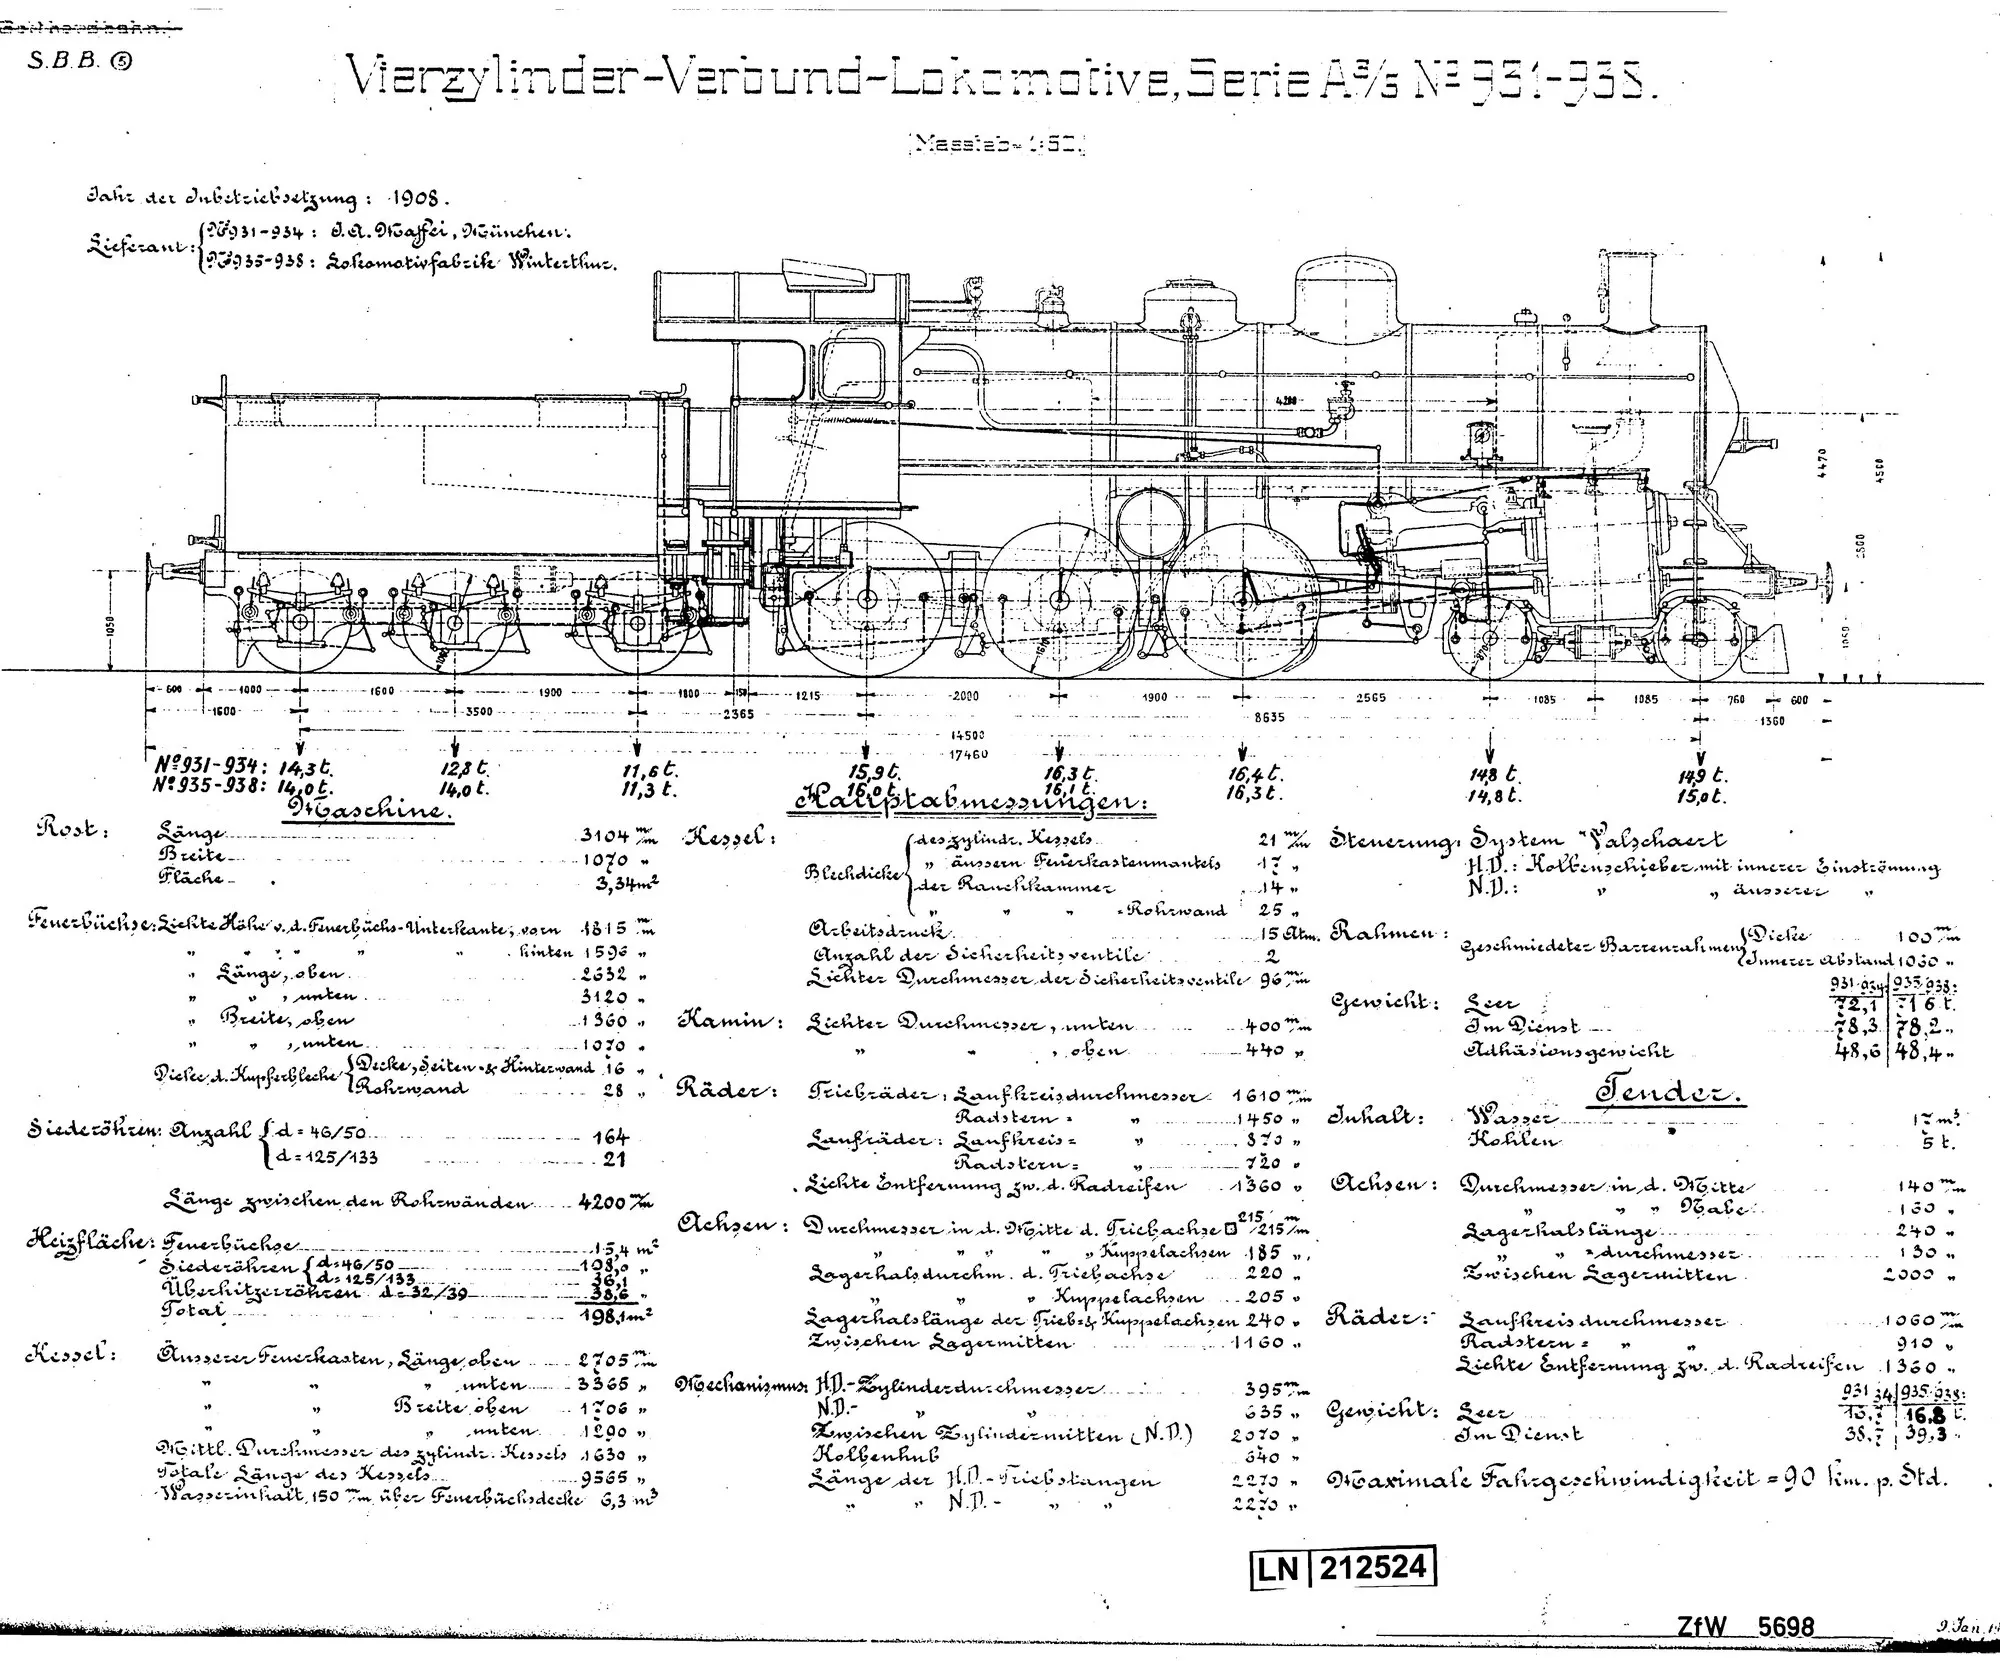 Gotthardbahn.
S.B.B. ⑤
Vierzylinder-Verbund-Lokomotive, Serie A 3/5 No 931-938.
(Masstab = 1:50.)
Jahr der Inbetriebsetzung : 1908.
Lieferant : { No 931-934 : J. A. Maffei, München.
No 935-938 : Lokomotivfabrik Winterthur.
4200
4470
4500
2600
1050
1050
1060
1610
870
600 1000 1600 1900 1800 150 1215 2000 1900 2565 1085 1085 760 600
1600 3500 2365 8635 1360
14500
17460
No 931-934 : 14,3 t. 12,8 t. 11,6 t. 15,9 t. 16,3 t. 16,4 t. 14,8 t. 14,9 t.
No 935-938 : 14,0 t. 14,0 t. 11,3 t. 16,0 t. 16,1 t. 16,3 t. 14,8 t. 15,0 t.
Hauptabmessungen :
Maschine.
Rost : Länge 3104 m/m
Breite 1070 "
Fläche 3,34 m²
Feuerbüchse : Lichte Höhe v. d. Feuerbüchs-Unterkante, vorn 1815 m/m
" " " " hinten 1596 "
" Länge, oben 2632 "
" " , unten 3120 "
" Breite, oben 1360 "
" " , unten 1070 "
Dicke d. Kupferbleche { Decke, Seiten- & Hinterwand 16 "
Rohrwand 28 "
Siederöhren : Anzahl { d = 46/50 164
d = 125/133 21
Länge zwischen den Rohrwänden 4200 m/m
Heizfläche : Feuerbüchse 15,4 m²
Siederöhren { d = 46/50 108,0 "
d = 125/133 36,1
Überhitzerröhren d = 32/39 38,6 "
Total 198,1 m²
Kessel : Äusserer Feuerkasten, Länge, oben 2705 m/m
" " " , unten 3365 "
" " Breite, oben 1706 "
" " " , unten 1290 "
Mittl. Durchmesser des zylindr. Kessels 1630 "
Totale Länge des Kessels 9565 "
Wasserinhalt, 150 m/m über Feuerbüchsdecke 6,3 m³
Kessel : Blechdicke { des zylindr. Kessels 21 m/m
" äussern Feuerkastenmantels 17 "
der Rauchkammer 14 "
" " " = Rohrwand 25 "
Arbeitsdruck 15 Atm.
Anzahl der Sicherheitsventile 2
Lichter Durchmesser der Sicherheitsventile 96 m/m
Kamin : Lichter Durchmesser, unten 400 m/m
" " , oben 440 "
Räder : Triebräder : Laufkreisdurchmesser 1610 m/m
Radstern = " 1450 "
Laufräder : Laufkreis = " 870 "
Radstern = " 720 "
Lichte Entfernung zw. d. Radreifen 1360 "
Achsen : Durchmesser in d. Mitte d. Triebachse □ 215/215 m/m
" " " " " Kuppelachsen 185 "
Lagerhalsdurchm. d. Triebachse 220 "
" " Kuppelachsen 205 "
Lagerhalslänge der Trieb- & Kuppelachsen 240 "
Zwischen Lagermitten 1160 "
Mechanismus : H.D.-Zylinderdurchmesser 395 m/m
N.D.- " " 635 "
Zwischen Zylindermitten (N.D.) 2070 "
Kolbenhub 640 "
Länge der H.D.-Triebstangen 2270 "
" " N.D.- " " 2270 "
Steuerung : System Walschaert
H.D. : Kolbenschieber mit innerer Einströmung
N.D. : " " äusserer "
Rahmen : Geschmiedeter Barrenrahmen { Dicke 100 m/m
Innerer Abstand 1030 "
931-934 | 935-938 :
Gewicht : Leer 72,1 | 71,6 t.
Im Dienst 78,3 | 78,2 "
Adhäsionsgewicht 48,6 | 48,4 "
Tender.
Inhalt : Wasser 17 m³
Kohlen 5 t.
Achsen : Durchmesser in d. Mitte 140 m/m
" " " Nabe 150 "
Lagerhalslänge 240 "
" " = durchmesser 130 "
Zwischen Lagermitten 2000 "
Räder : Laufkreisdurchmesser 1060 m/m
Radstern = " 910 "
Lichte Entfernung zw. d. Radreifen 1360 "
931-34 | 935-938 :
Gewicht : Leer 16,8 t.
Im Dienst 38,7 | 39,3 "
Maximale Fahrgeschwindigkeit = 90 km. p. Std.
LN 212524
ZfW 5698
9. Jan.